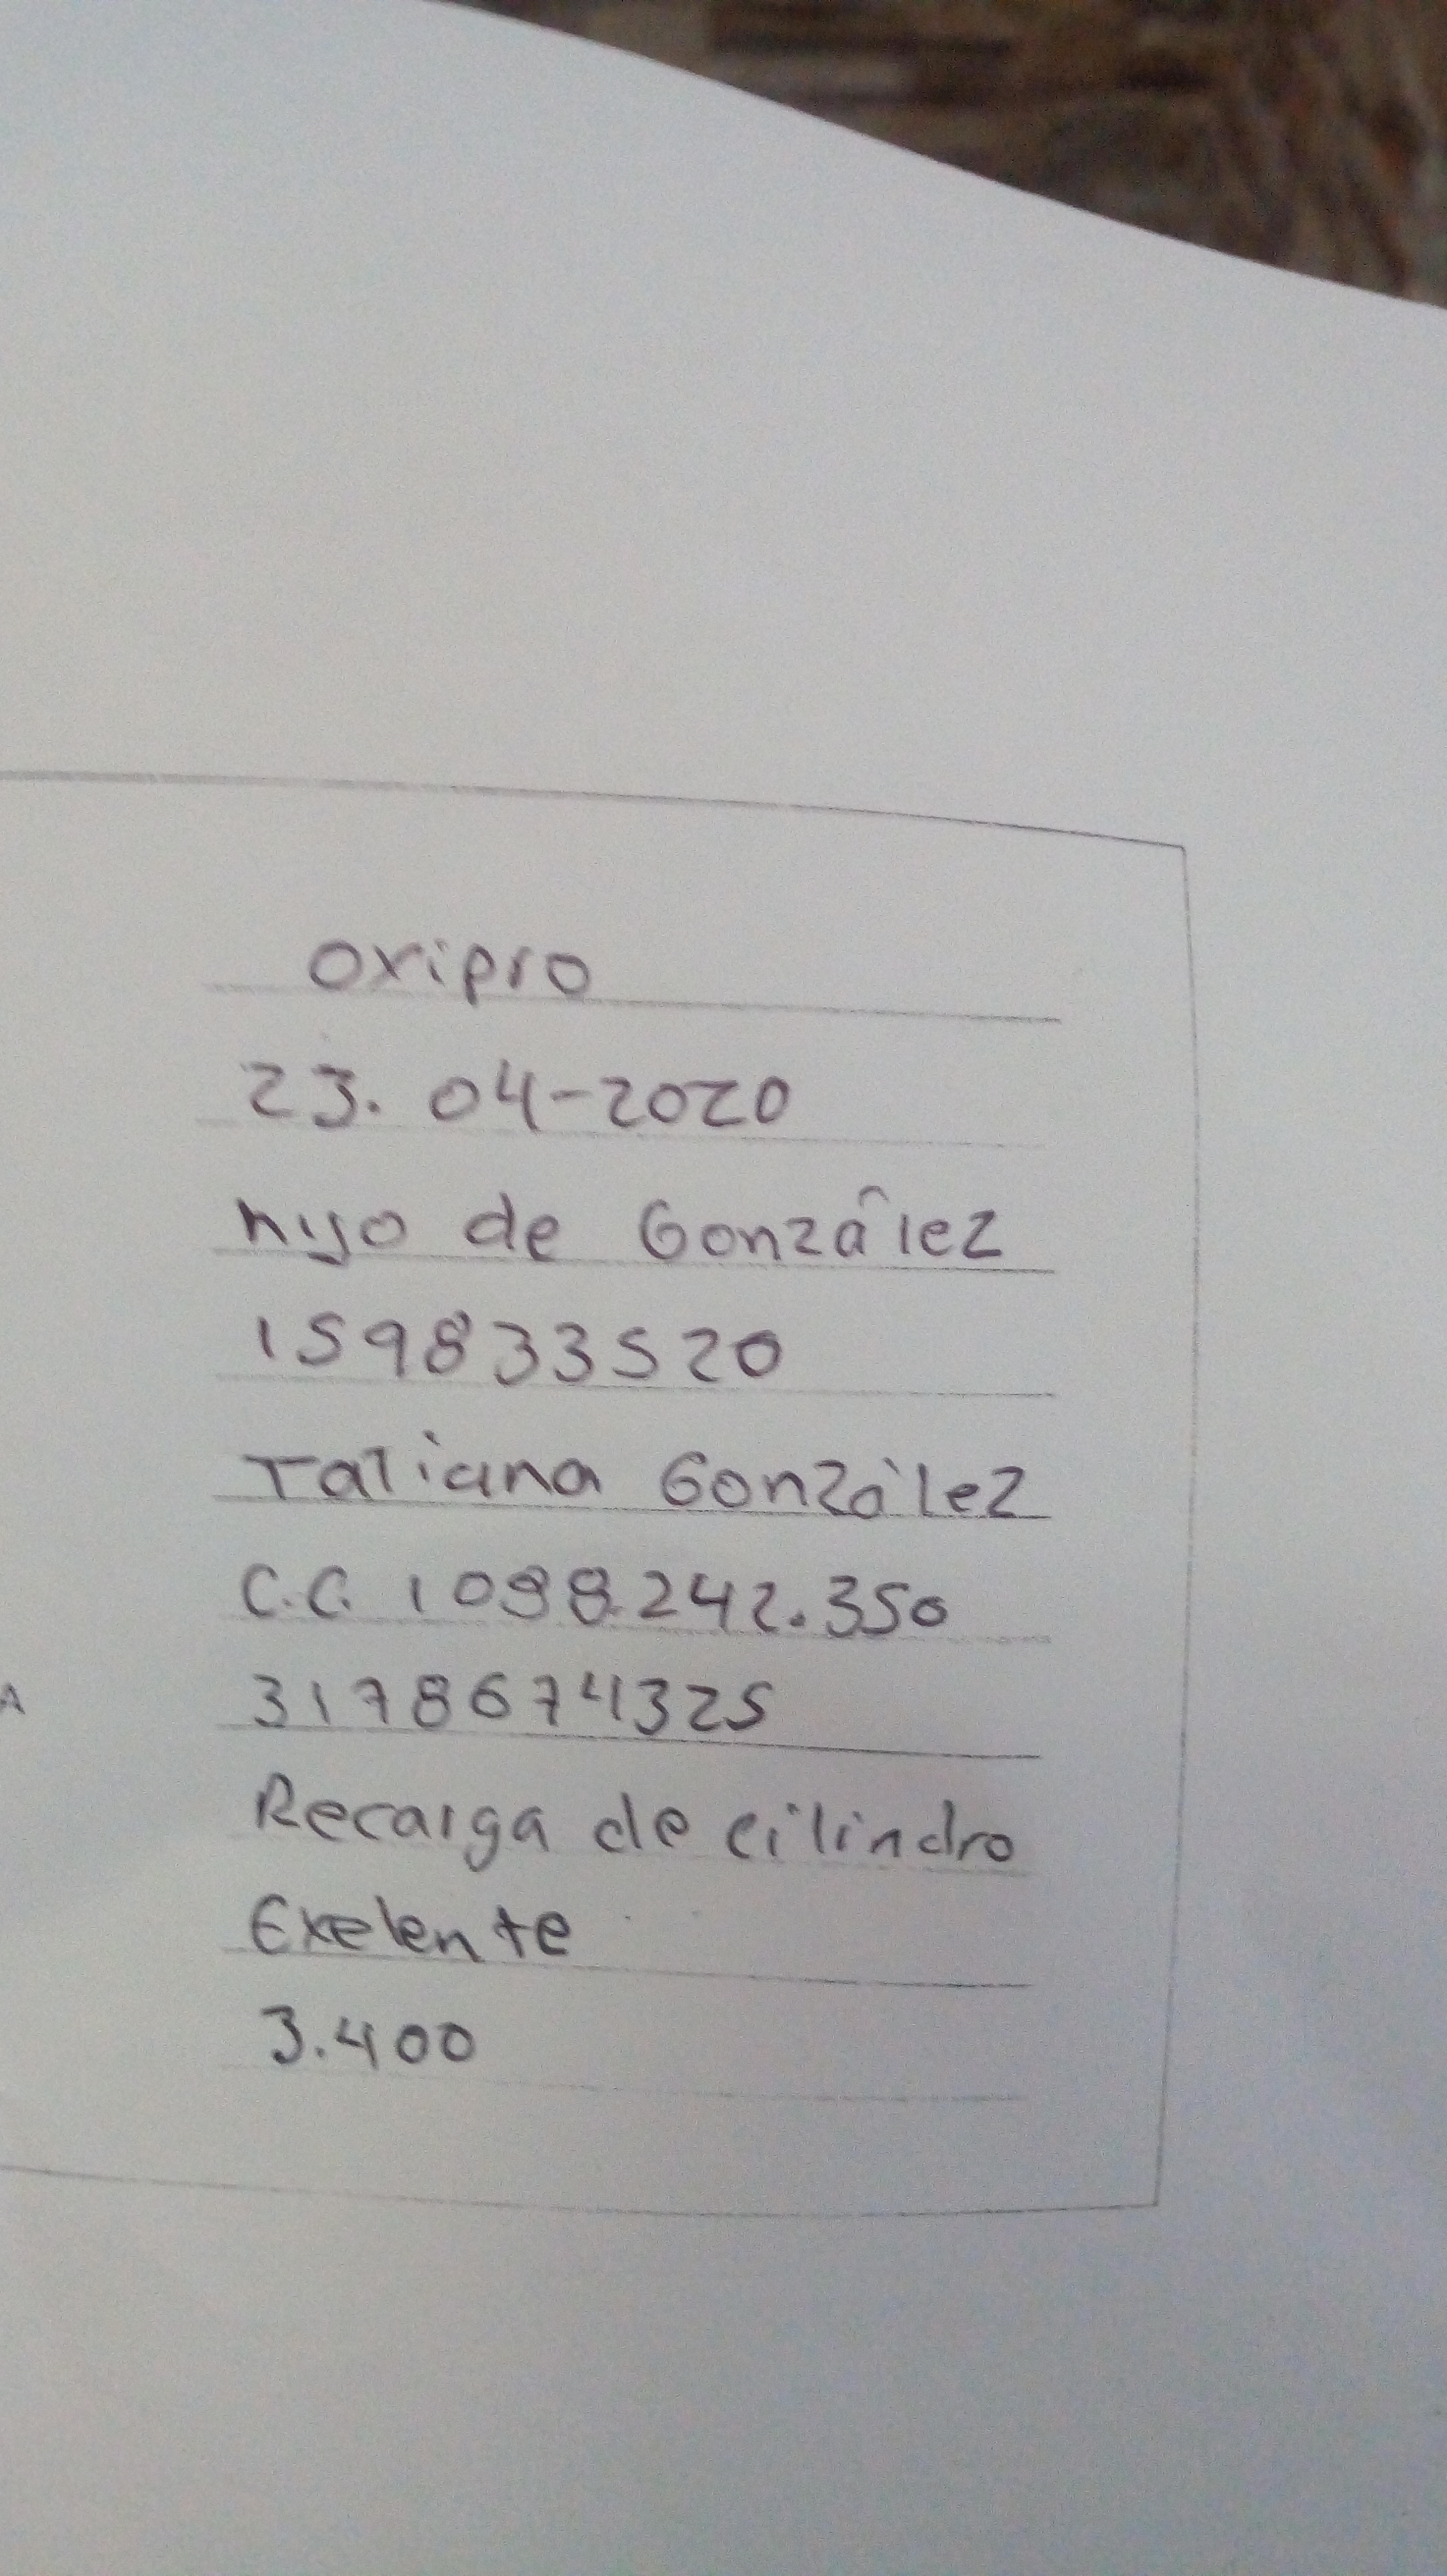 oxipro
23. 04-2020
hijo de González
159833520
Tatiana González
C.C. 1098.242.350
A
3178674325
Recarga de cilindro
Exelente
3.400